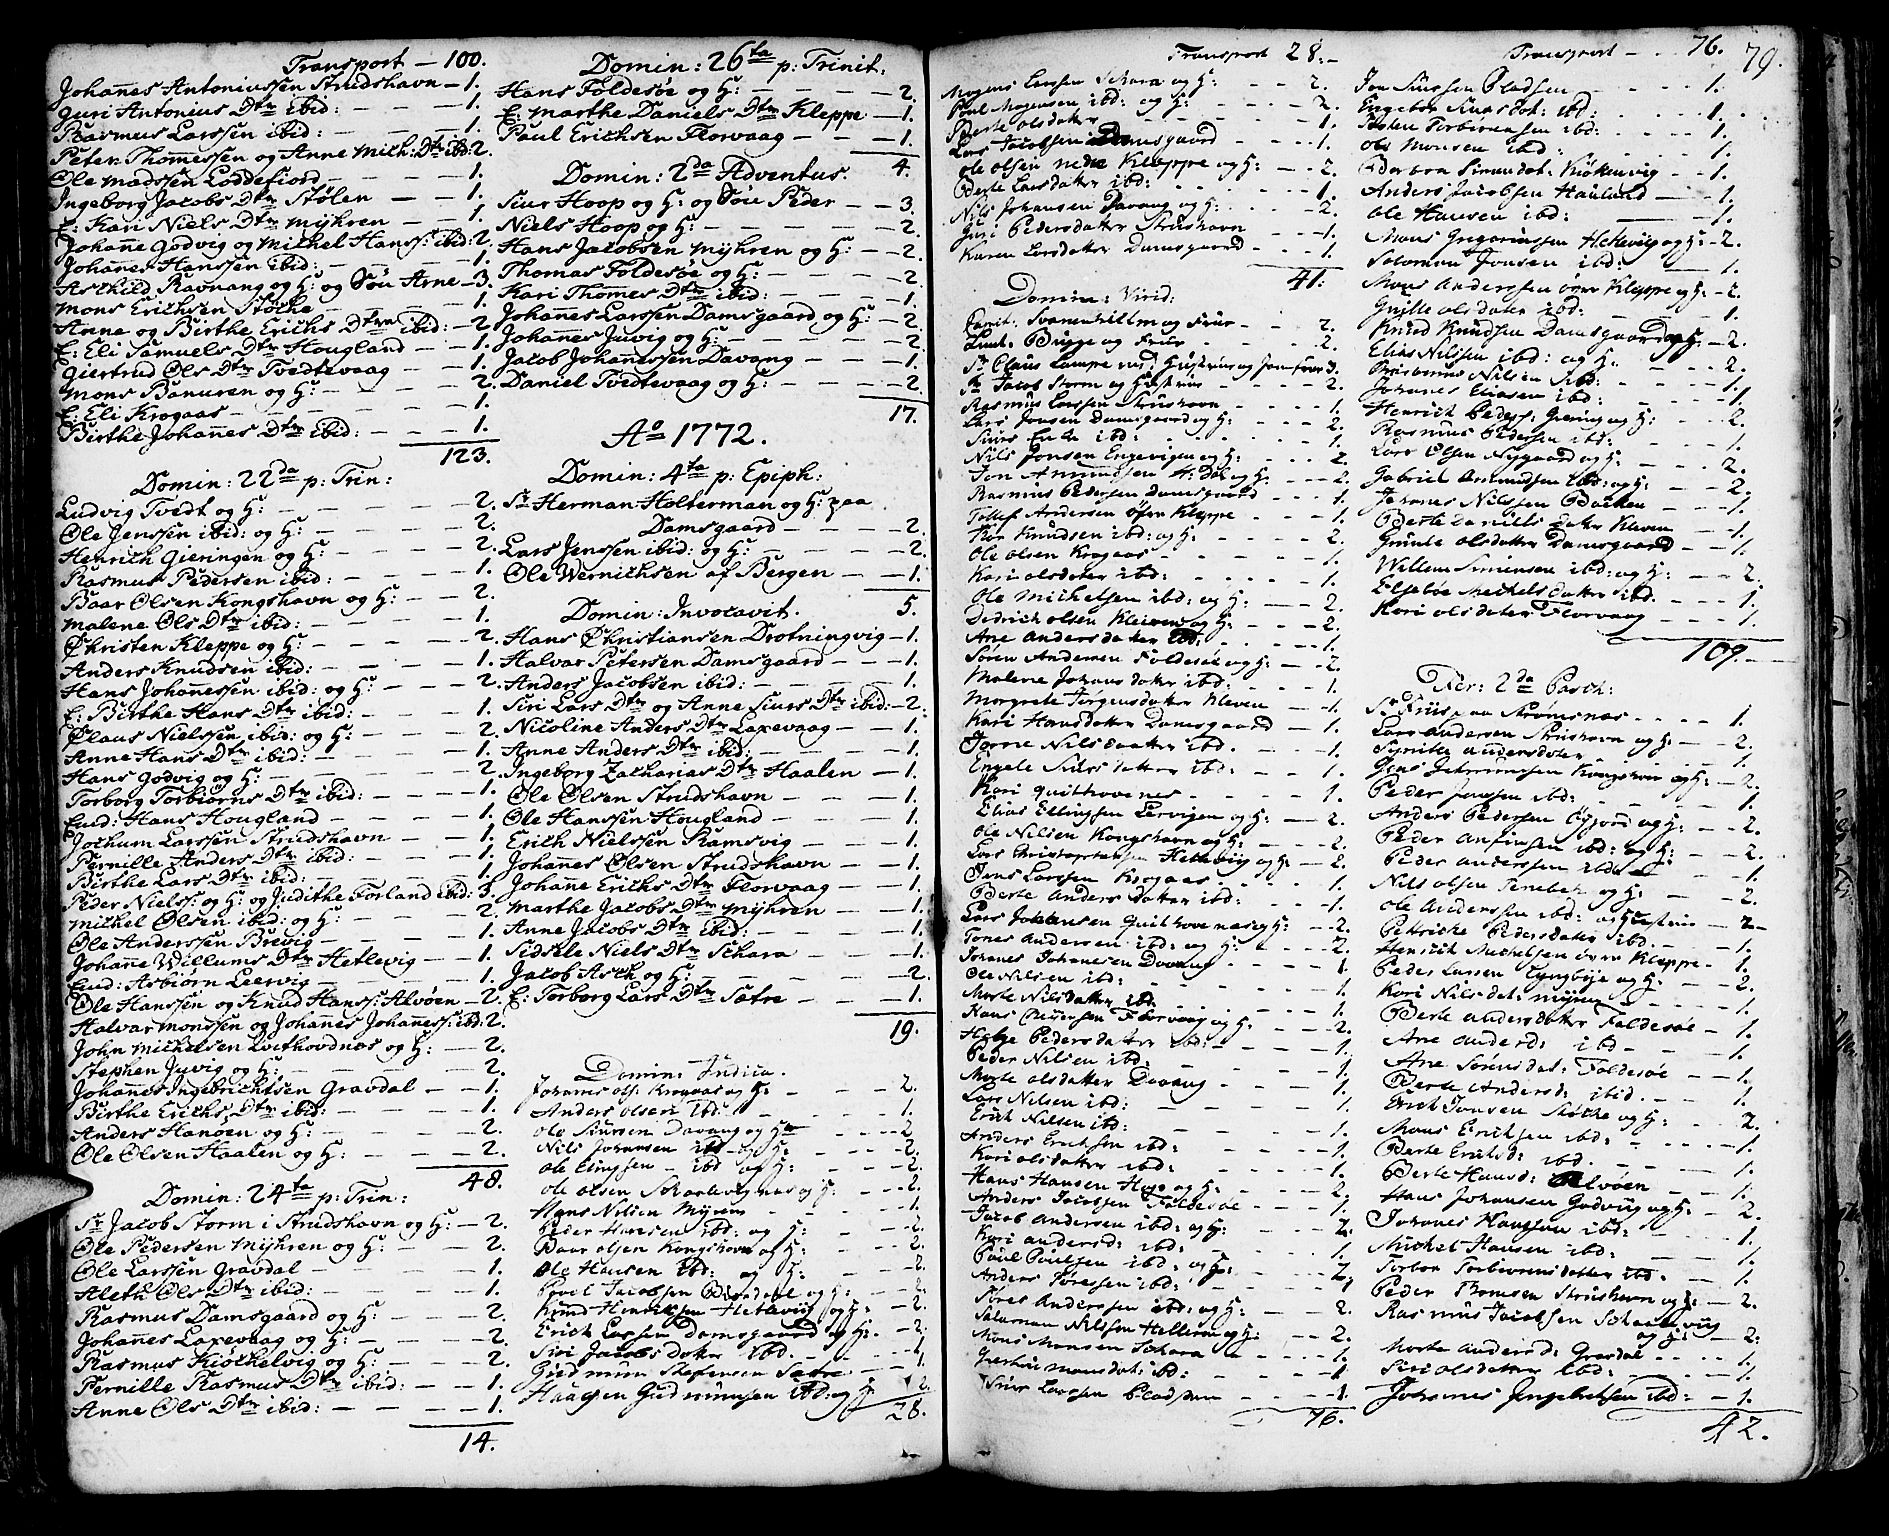 Transport — 100.
Johannes Antoniussen Strudshavn — 1.
Guri Antonius Dtr ibid: — — 1.
Rasmus Larssen ibid: — — — 1.
Peter Thomessen og Anne Mich: Dtr ibid: 2.
Ole Madssen Loddefiord — — — 1.
Ingeborg Jacobs Dtr Stølen — — 1.
E: Kari Niels Dtr Myhren — — 1.
Johanne Godvig og Michel Hanss: ibid: 2.
Johannes Hanssen ibid: — — — 1.
Askild Ravnang og H: og Søn Arne — 3.
Mons Erichsen Støthe — — — 1.
Anne og Birthe Erichs Dtre ibid: — 2.
E: Eli Samuels Dtr Hougland — — 1.
Giertrud Ols Dtr Tvedtevaag — — 1.
Mons Banuren og H: — — — 2.
E: Eli Krogaas — — — — 1.
Birthe Johannes Dtr ibid: — — 1.
123.
Domin: 22da p: Trin:
Ludvig Tvedt og H: — — — — 2.
Ole Jenssen ibid: og H: — — — 2.
Henrich Gieringen og H: — — — 2.
Rasmus Pedersen ibid: — — — 1.
Baar Olsen Kongshavn og H: — — 2.
Malene Ols Dtr ibid: — — — 1.
Christen Kleppe og H: — — — 2.
Anders Knudsen ibid: — — — 1.
Hans Johannessen ibid: og H: — — 2.
E: Birthe Hans Dtr ibid: — — — 1.
Claus Nielssen ibid: og H: — — 2.
Anne Hans Dtr ibid: — — — 1.
Hans Godvig og H: — — — — 2.
Torborg Torbiørns Dtr ibid: — — 1.
Eud: Hans Hougland — — — 1.
Jochum Larssen Strudshavn — — 1.
Pernille Anders Dtr ibid: — — 1.
Birthe Lars Dtr ibid: — — — 1.
Peder Nielss: og H: og Judithe Forland ibid: 3.
Michel Olsen ibid: og H: — — 2.
Ole Anderssen Brevig — — — 1.
Johanne Willums Dtr Hetlevig — — 1.
Eud: Asbiørn Leervig — — — 1.
Ole Hanssen og Knud Hanss: Alvøen — 2.
Halvar Monssen og Johannes Johanness: ibid: 2.
John Michelsen Qvithovdnæs og H: — 2.
Stephen Juvig og H: — — — 2.
Johannes Ingebrichtsen Gravdal — — 1.
Birthe Erichs Dtr ibid: — — — 1.
Anders Hanøen og H: — — — 2.
Ole Olsen Haalen og H: — — — 2.
48.
Domin: 24ta p: Trin:
Sr Jacob Storm i Strudshavn og H: — 2.
Ole Pedersen Myhren og H: — — 2.
Ole Larssen Gravdal — — — 1.
Aleth Ols Dtr ibid: — — — 1.
Rasmus Damsgaard og H: — — 2.
Johannes Laxevaag og H: — — 2.
Rasmus Kiøchelvig og H: — — 2.
Pernille Rasmus Dtr ibid: — — 1.
Anne Ols Dtr ibid: — — — 1.
14.
Domin: 26ta p: Trinit:
Hans Foldesøe og H: — — — — 2.
E: Marthe Daniels Dtr Kleppe — — 1.
Paul Erichsen Florvaag — — — 1.
4.
Domin: 2da Adventus.
Siur Hoop og H: og Søn Peder — — 3.
Niels Hoop og H: — — — — 2.
Hans Jacobsen Myhren og H: — — 2.
Thomas Foldesøe og H: — — — 2.
Kari Thomes Dtr ibid: — — — 1.
Johannes Larssen Damsgaard og H: — 2.
Johannes Juvig og H: — — — 2.
Jacob Johannessen Davang — — 1.
Daniel Tvedtevaag og H: — — — 2.
17.
Ao 1772.
Domin: 4ta p: Epiph:
Sr Herman Holterman og H: paa
Damsgaard — — — 2.
Lars Jenssen ibid: og H: — — — 2.
Ole Wernichsen af Bergen — — 1.
5.
Domin: Invocavit.
Hans Christiansen Drotningvig — 1.
Halvar Petersen Damsgaard — — 1.
Anders Jacobsen ibid: — — — 1.
Siri Lars Dtr og Anne Siurs Dtr ibid: — 2.
Nicoline Anders Dtr Laxevaag — — 1.
Anne Anders Dtr ibid: — — — 1.
Ingeborg Zacharias Dtr Haalen — 1.
Ole Olsen Strudshavn — — — 1.
Ole Hanssen Hougland — — — 1.
Erich Nielssen Ramsvig — — — 1.
Johannes Olsen Strudshavn — — 1.
Johanne Erichs Dtr Florvaag — — 1.
Marthe Jacobs Dtr Myhren — — 1.
Anne Jacobs Dtr Ebid: — — — 1.
Sidsele Niels Dtr Schara — — — 1.
Jacob Ask og H: — — — — 2.
E: Torborg Lars Dtr Sætre — — 1.
19.
Domin: Judica.
Johannes ols: Krogaas og H: — — 2.
Anders olsen ibd: — — — 1.
ole Siursen Davang og H: — — 2.
Nils Johansen ibd og H: — — 2.
ole Elingsen — ibd og H: — — 2.
ole olsen Skaalevignæs og H: — 2.
Hans Nilsen Myren — — —
Peder Hansen ibd: og H: — — 2.
Baar olsen Kongshavn og H: — 2.
Ole Hansen ibd: og H: — — 2.
Poul Jacobsen og H: — 2.
Knud Henriksen Hetlevig og H: — 2.
Erich Larsen Damsgaard og H: — 2.
Siri Jacobs dotter ibd. — — 1.
Gudmun Stefensen Sætre — — 1.
Haagen Gudmunsen ibd: og H: 2.
28.
Transport 28: —
Mogens Larsen Schara og H: — — 2.
Poul Mogensen ibd: og H: — — 2.
Berte olsdatter — — — 1.
Lars Jacobsen Damsgaard — — 1.
ole olsen nedre Kleppe og H: — 2.
Berte Larsdatter ibd: — — — 1.
Nils Johansen Davang og H: — — 2.
Guri Pedersdatter Strushavn — — 1.
Karen Larsdatter Damsgaard — — 1.
41.
Domin: Virid:
Capit: Svanenhielm og Frue — — 2.
Lieut: Brygge og Frue — — — 2.
Sr Claus Lampe med Hustrue og Jomfrue 3.
Sr Jacob Storm og Hustrue — — 2.
Rasmus Larssen Strushavn — — 1.
Lars Jonsen Damsgaard og H: — 2.
Siurs Enke ibd: — — — 1.
Nils Jonsen Engevigen og H: — — 2.
Jon Ammundsen H. Dal og H: — 2.
Rasmus Pedersen Damsgaard — 1.
Tollef Andersen Øfre Kleppe — — 1.
Per Knudsen ibd: og H: — — 2.
Ole olsen Krogaas — — — 1.
Kari olsdatter ibd: — — — 1.
Ole Michelsen ibd: og H: — — 2.
Didrich olsen Kleiven og H: — — 2.
Ane Andersdatter ibd: — — 1.
Søren Andersen Foldesøe og H: — 2.
Malene Johansdatter ibd: — — 1.
Margrete Jørgensdatter Kleven — 1.
Kari Hansdatter Damsgaard — 1.
Jorne Nilsdaatter ibd. — — 1.
Engele Siursdatter ibd: — — 1.
Kari Quithovenes — — — 1.
Elias Ellingsen Lervigen og H: — 2.
ole Nilsen Kongshavn og H: — — 2.
Lars Christophersen Hetlevig og H: — 2.
Jens Larssen Krogaas — — — 1.
Berte Andersdatter ibd: — — 1.
Lars Johansen Quithovenæs og H: — 2.
Tones Andersen ibd: og H: — — 2.
Johanes Johanesen Davang — — 1.
Ole Nilsen ibd: — — — 1.
Marte Nilsdatter ibd — — — 1.
Hans Florvaag og H: — 2.
Helge Pedersdatter ibd: — — 1.
Peder Nilsen ibd: — — — 1.
Marte olsdatter Davang — — 1.
Lars Nilsen ibd: — — — 1.
Erich Nilsen ibd: — — — 1.
Anders Erichsen ibd: — — — 1.
Kari olsdatter ibd: — — — 1.
Hans Hansen Hop og H: — — 2.
Anders Jacobsen Foldesøe — — 1.
Jacob Andersen ibd: og H: — — 2.
Kari andersd: ibd: — — — 1.
Poul Poulsen ibd: og H: — — 2.
Anders Sørensen ibd: — — — 1.
Søren Anderssen ibd: og H: — — 2.
Salamon Nilsen Helleren og H: — 2.
Mons Monsen Schara — — — 1.
Giertrue Monsdat: ibd: — — — 1.
Siur Larssen Pladsen — — — 1.
76.
Transport — — 76. 79.
Jon Siursen Pladsen — — — 1.
Engebor Siursdot: ibd: — — 1.
Torbiørnsen ibd: — — 1.
ole Monsen ibd: — — — 1.
Simundat: Kiökenvig — — 1.
Anders Jacobsen Hauland — — 1.
ole Hansen ibd: — — — 1.
Mons Gregoriussen Hetlevig og H: — 2.
Salamon Jonsen ibd: — — — 1.
Mons Anderssen øvre Kleppe og H: — 2.
Gunille olsdatter ibd: — — 1.
Knud Knudsen Damsgaard og H: — 2.
Elias Nilsen ibd: og H: — — 2.
Nilsen ibd: — — 1.
Johanes Eliassen ibd: — — — 1.
Henrich Peders: Giering og H: — 2.
Rasmus Pedersen ibd: — — 1.
Lars Olsen Nygaard og H: — — 2.
Gabriel Ammundsen ibd: og H: — 2.
Johanes Nilssen Backen — — 1.
Berte Danielsdatter Kleven — 1.
Gunile olsdatter Damsgaard — 1.
Willem Simensen ibd: og H: — — 2.
Elsebøe Mechelsdatter ibd. — 1.
Kari olsdatter Florvaag — — 1.
109. —
Fer: 2da Pasch:
Sr Friis paa Strømsnæs — — 1.
Lars Andersen Strushavn og H: — 2.
Synnike Andersdotter — — 1.
Jens Kongshavn og H: — 2.
Peder Jensen ibd: — — — 1.
Anders Pedersen og H: — 2.
Peder Anfinsen ibd: og H: — — 2.
Peder Anderssen ibd: — — — 1.
Nils olsen Tenebek og H: — — 2.
ole Anderssen ibd: og Hustrue — 2 —
Petricke Pedersdatter ibd. — — 1.
Henrich Michelsen øvre Kleppe — 1.
Peder Larssen Lyngbye og H: — 2.
Kari Nilsdat: Myren — — — 1.
Berte Andersdatter Foldesøe — 1.
Ane Andersd: ibd — — — 1.
Ane Sørensdat: Foldesøe — — 1.
Berte Andersd: ibid. — — — 1.
Erich Jonsen Støthe og H: — — 2.
Mons Erichsen ibd: — — — 1.
Berte Erichsd: ibd. — — — 1.
Berte Hansd: Alvøen — — — 1.
Hans Johansen Godvig og H: — — 2.
Johanes Hanssen ibd: — — 1.
Michel Hansen ibd: — — — 1.
Torbor Torbiørensdatter ibd: — 1.
Peder Tomsen Strushavn og H: — 2.
Rasmus Jacobsen Schaalevig
og H: — — 2.
Marte Andersd: Gravdal — — 1.
Siri olsdatter ibd: — — — 1.
Johannes Ingebretsen ibd: — 1.
42.